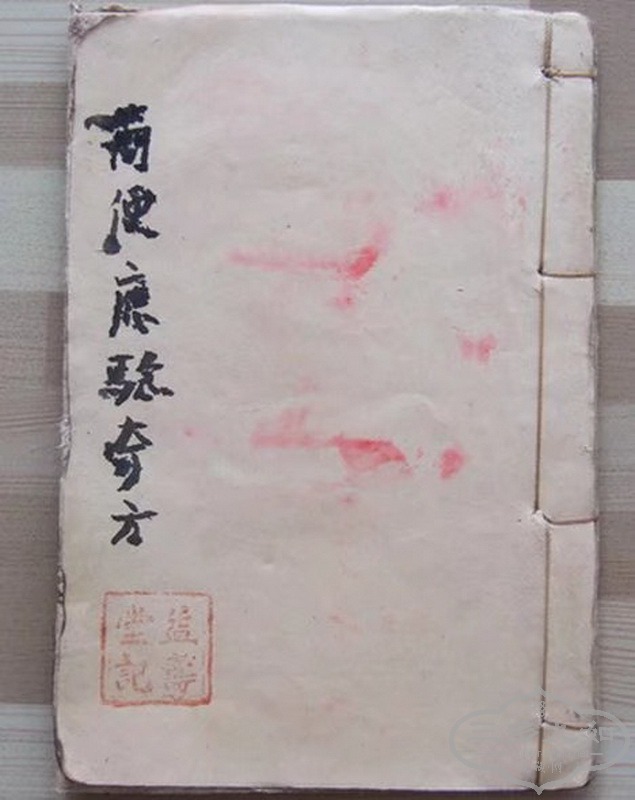 簡便應驗奇方
益壽
堂記